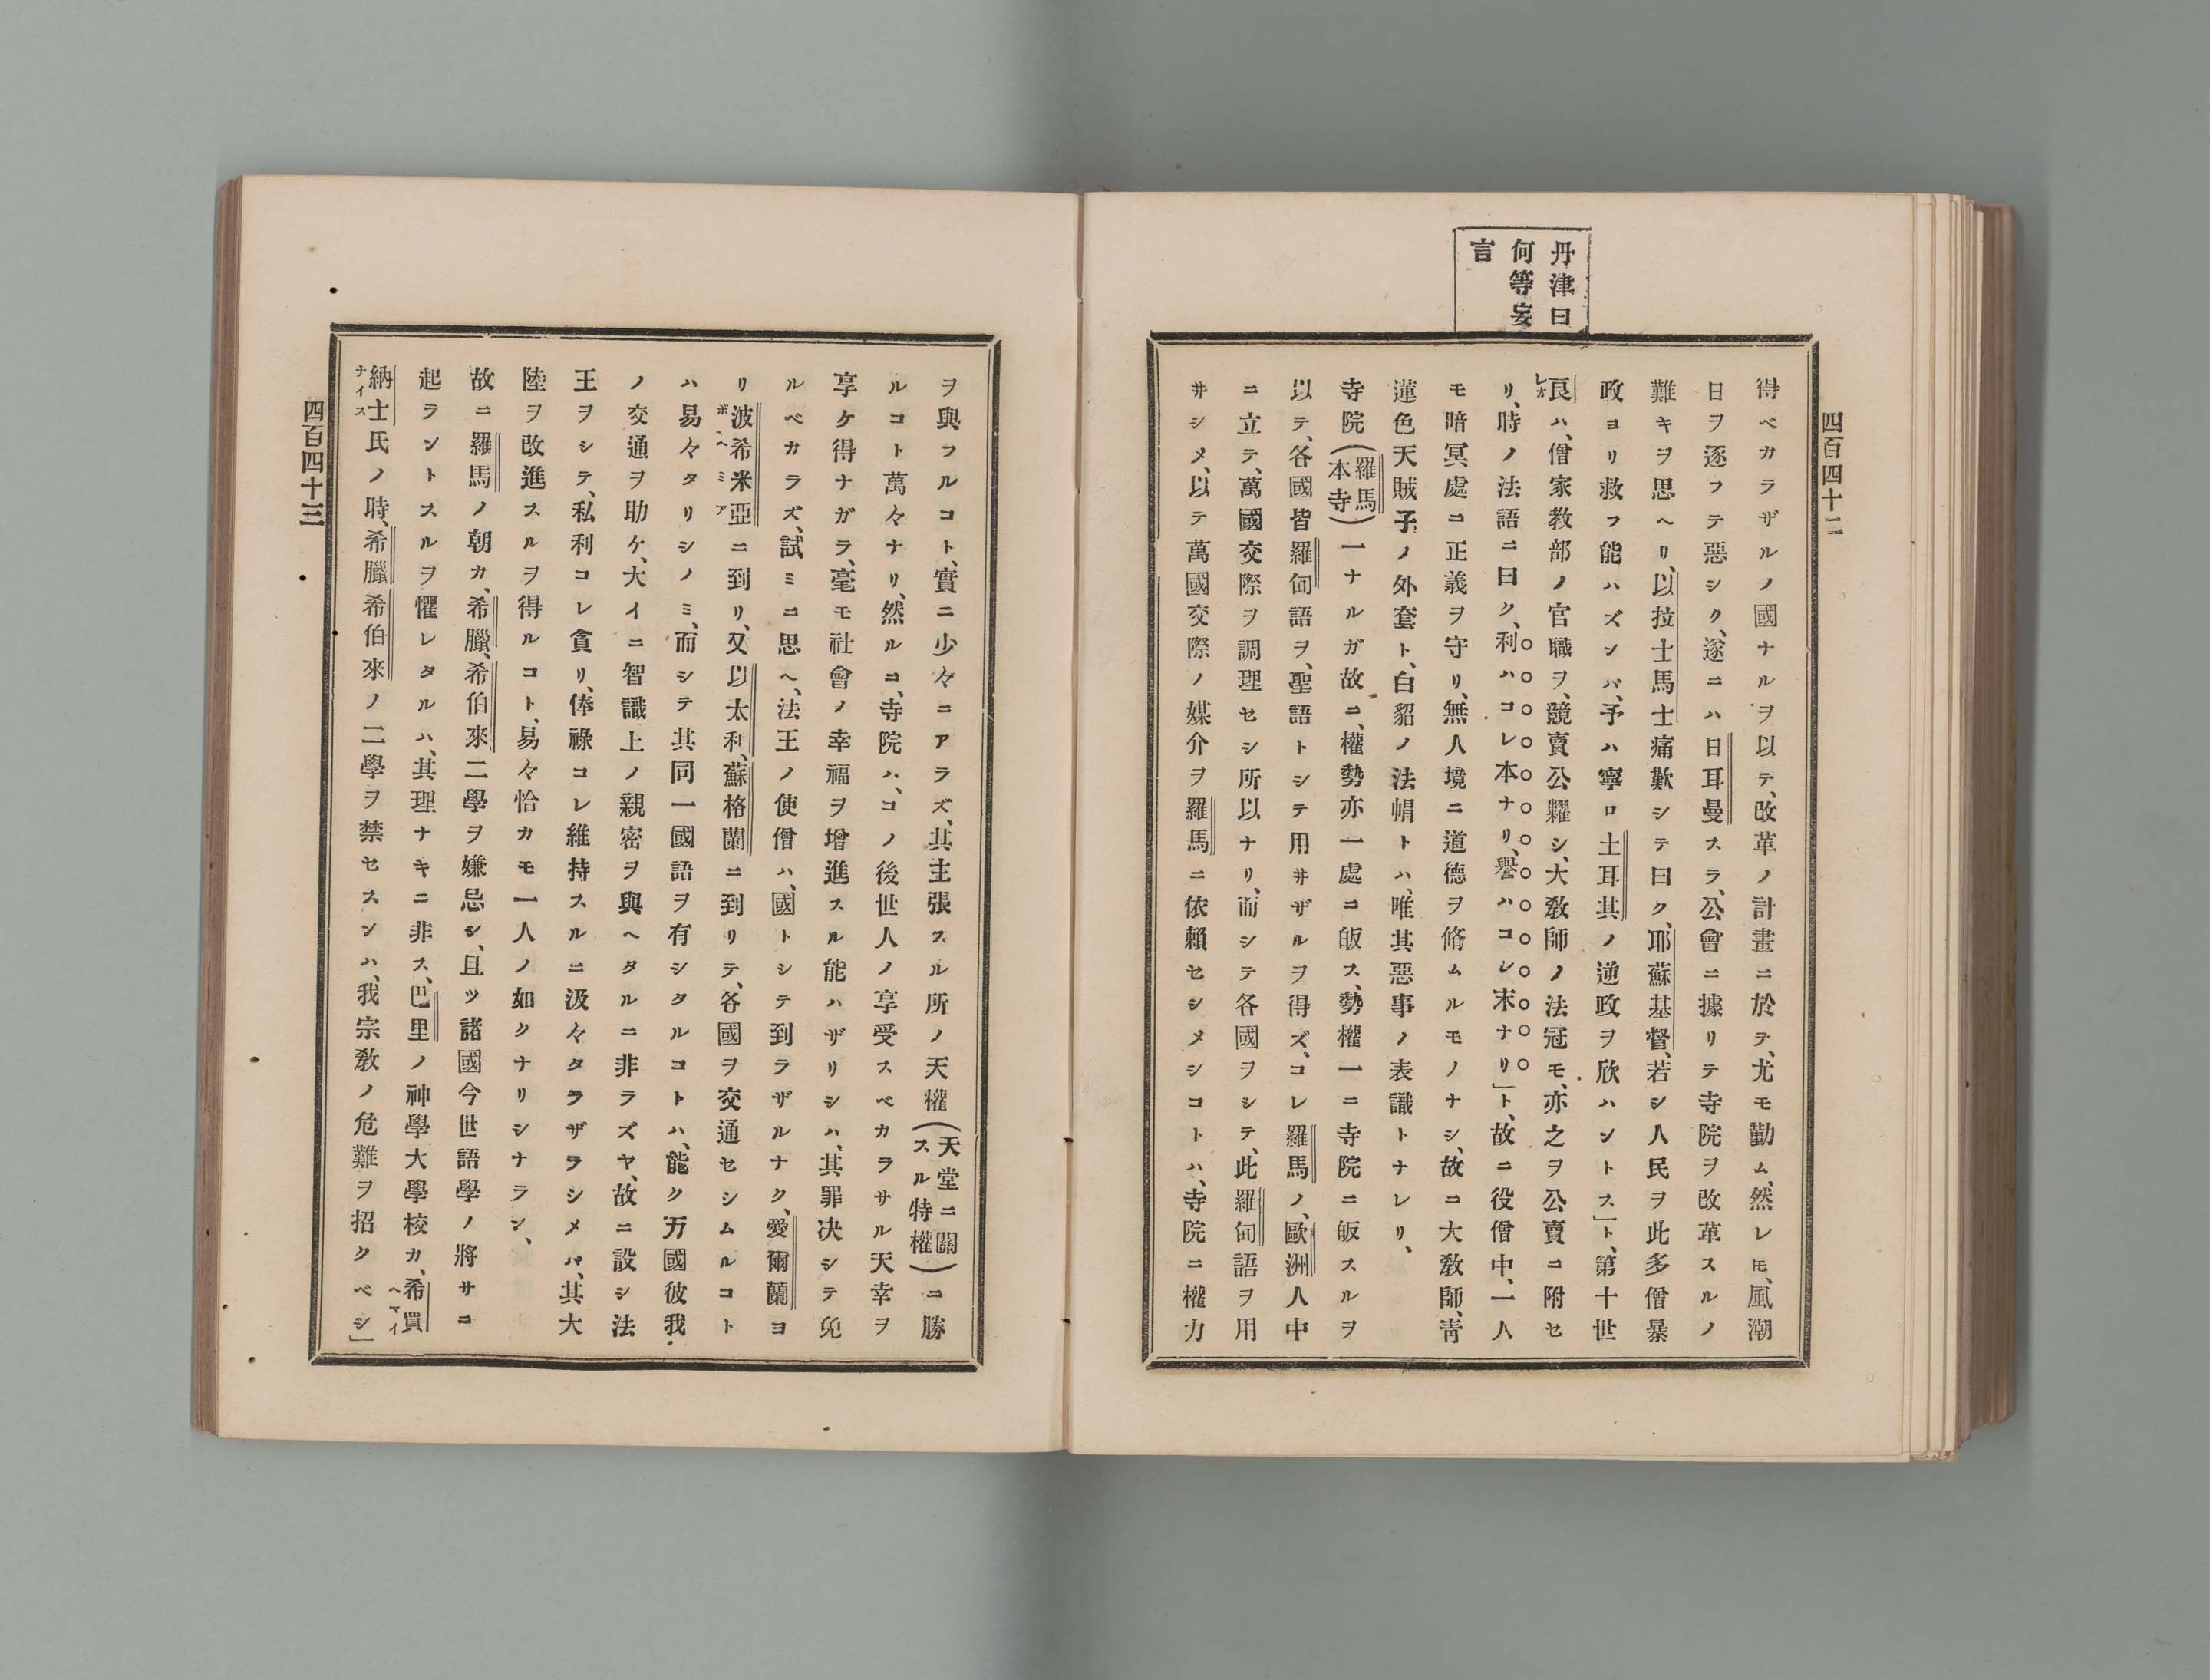 四百四十二
丹津曰
何等妄
言
得ベカラザルノ國ナルヲ以テ、改革ノ計畫ニ於テ、尤モ勸ム、然レ𪜈、風潮
日ヲ逐フテ惡シク、遂ニハ日耳曼スラ、公會ニ據リテ寺院ヲ改革スルノ
難キヲ思ヘリ、以拉士馬士痛歎シテ曰ク、耶蘇基督、若シ人民ヲ此多僧暴
政ヨリ救フ能ハズンバ、予ハ寧ロ土耳其ノ逆政ヲ欣ハントス」ト、第十世
良ハ、僧家教部ノ官職ヲ、競賣公糶シ、大教師ノ法冠モ、亦之ヲ公賣ニ附セ
レオ
リ、時ノ法語ニ曰ク、利ハコレ本ナリ、譽ハコレ末ナリ」ト、故ニ役僧中、一人
モ暗冥處ニ正義ヲ守リ、無人境ニ道德ヲ脩ムルモノナシ、故ニ大教師、靑
蓮色天賊子ノ外套ト、白貂ノ法帽トハ、唯其惡事ノ表識トナレリ、
寺院(羅馬本寺)一ナルガ故ニ、權勢亦一處ニ皈ス、勢權一ニ寺院ニ皈スルヲ
以テ、各國皆羅甸語ヲ、聖語トシテ用井ザルヲ得ズ、コレ羅馬ノ、歐洲人中
ニ立テ、萬國交際ヲ調理セシ所以ナリ、而シテ各國ヲシテ、此羅甸語ヲ用
井シメ、以テ萬國交際ノ媒介ヲ羅馬ニ依賴セシメシコトハ、寺院ニ權力
ヲ與フルコト、實ニ少々ニアラズ、其主張スル所ノ天權(天堂ニ關スル特權)ニ勝
ルコト萬々ナリ、然ルニ、寺院ハ、コノ後世人ノ享受スベカラサル天幸ヲ
享ケ得ナガラ、毫モ社會ノ幸福ヲ增進スル能ハザリシハ、其罪决シテ免
ルベカラズ、試ミニ思ヘ、法王ノ使僧ハ、國トシテ到ラザルナク、愛爾蘭ヨ
リ波希米亞ニ到リ、又以太利、蘇格蘭ニ到リテ、各國ヲ交通セシムルコト
ボヘミア
ハ易々タリシノミ、而シテ其同一國語ヲ有シタルコトハ、能ク万國彼我
ノ交通ヲ助ケ、大イニ智識上ノ親密ヲ與ヘタルニ非ラズヤ、故ニ設シ法
王ヲシテ、私利コレ貪リ、俸祿コレ維持スルニ汲々タラザラシメバ、其大
陸ヲ改進スルヲ得ルコト、易々恰カモ一人ノ如クナリシナラン、
故ニ羅馬ノ朝カ、希臘、希伯來二學ヲ嫌忌シ、且ツ諸國今世語學ノ將サニ
起ラントスルヲ懼レタルハ、其理ナキニ非ス、巴里ノ神學大學校カ、希買
ヘマイ
納士氏ノ時、希臘希伯來ノ二學ヲ禁セスンハ、我宗敎ノ危難ヲ招クベシ」
ナイス
四百四十三